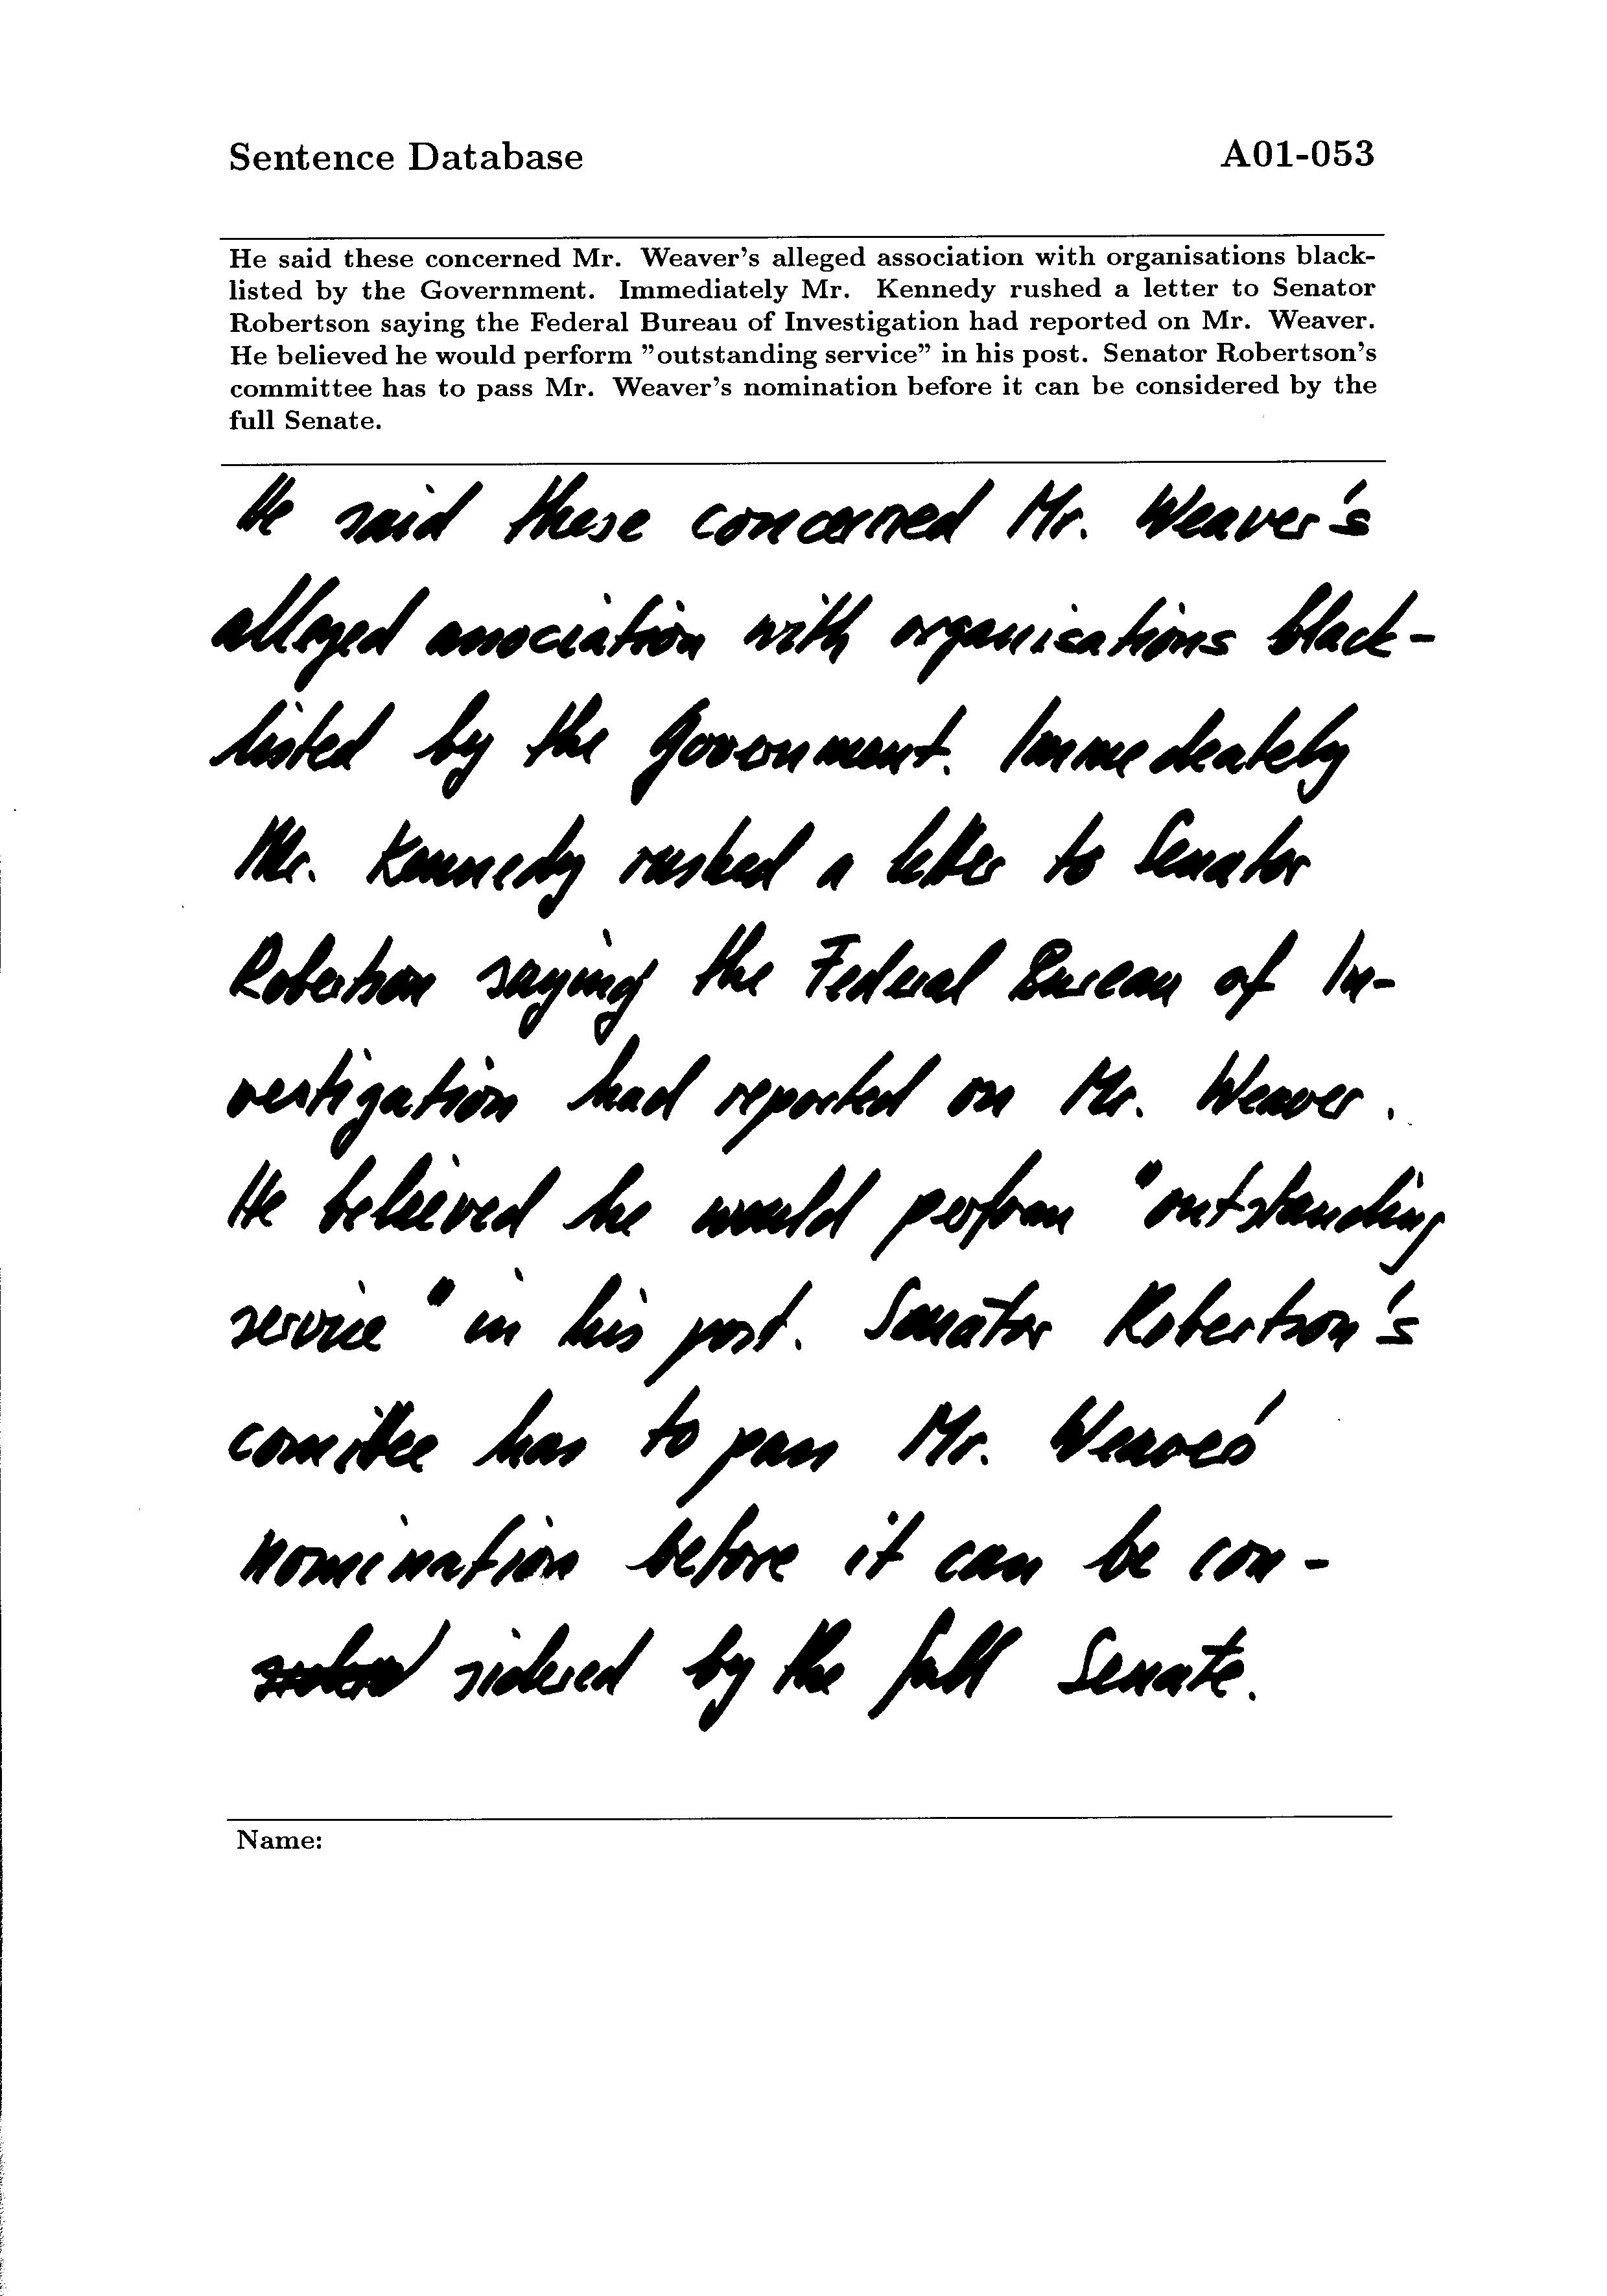 Sentence Database A01-053
He said these concerned Mr. Weaver's alleged association with organisations black-
listed by the Government. Immediately Mr. Kennedy rushed a letter to Senator
Robertson saying the Federal Bureau of Investigation had reported on Mr. Weaver.
He believed he would perform "outstanding service" in his post. Senator Robertson's
committee has to pass Mr. Weaver's nomination before it can be considered by the
full Senate.
He said these concerned Mr. Weaver's
alleged association with organisations black-
listed by the Government. Immedeately
Mr. Kennedy rushed a letter to Senator
Robertson saying the Federal Bureau of In-
vestigation had reported on Mr. Weaver.
He believed he would perform "outstanding
service" in his post. Senator Robertson's
comittee has to pass Mr. Weaver's
nomination before it can be con-
sidered by the full Senate.
Name: